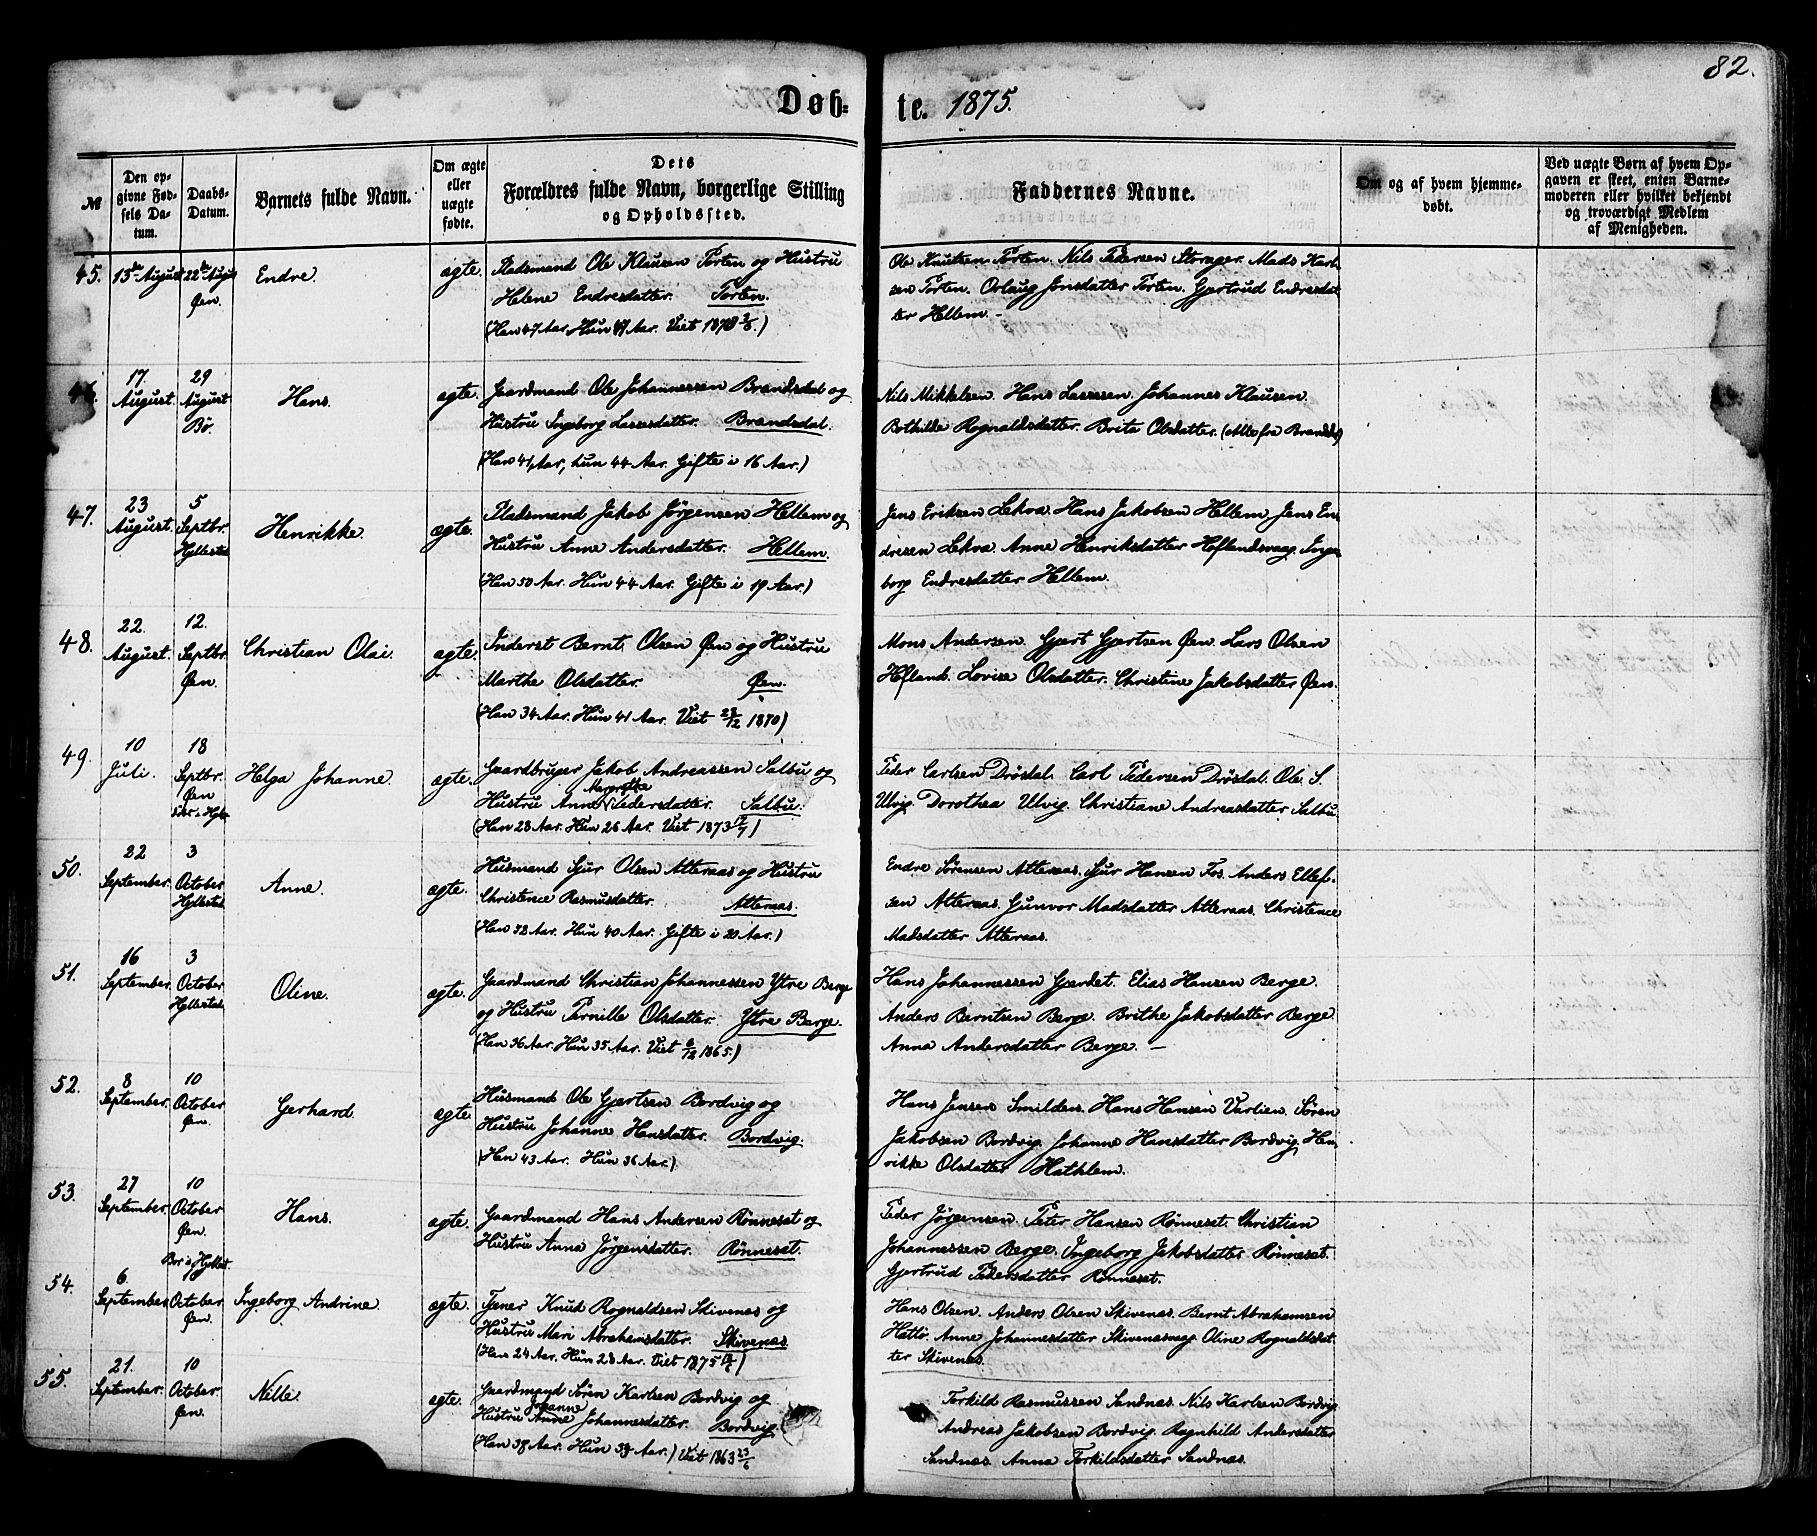 82.
Døb-
te. 1875.
№
Den op-
givne Fød-
sels Da-
tum.
Daabs-
Datum.
Barnets fulde Navn.
Om ægte
eller
uægte
fødte.
Dets
Forældres fulde Navn, borgerlige Stilling
og Opholdssted.
Faddernes Navne.
Om og af hvem hjemme-
døbt.
Ved uægte Børn af hvem Op-
gaven er skeet, enten Barne-
moderen eller hvilket bekjendt
og troværdigt Medlem
af Menigheden.
45. 15de August 22de August
Øen.
Endre.
ægte.
Pladsmand Ole Klausen Porten og Hustru
Helene Endresdatter. Porten.
(Han 47 Aar, Hun Aar. Viet 1873)
Ole Knutsen Porten. Nils Pedersen Storager. Mads Karl-
sen Porten. Orlaug Jonsdatter Porten. Gjertrud Endresdat-
ter Hellem. -
46. 17. August. 29 August
Bø.
Hans.
ægte.
Gaardmand Ole Johannessen Brandsdal og
Hustru Ingeborg Lassesdatter. Brandsdal.
(Han 41 Aar, hun 44 Aar. Gifte i 16 Aar.)
Nils Mikkelsen. Hans Lassesen. Johannes Klausen.
Bothilde Rognaldsdatter. Brite Olsdatter. (Alle fra Brandsd)
47. 23 August. 5 Septbr.
Hyllestad
Henrikke.
ægte.
Pladsmand Jakob Jörgensen Hellem og
Hustru Anne Andersdatter. Hellem.
(Han 50 Aar. Hun 44 Aar. Gifte i 19 Aar.)
Jens Eriksen Lekva. Hans Jakobsen Hellem. Jens En-
dresen Lekva. Anne Henriksdatter Hoflandsvaag. Inge-
borg Endresdatter Hellem.
48. 22. August. 12. Septbr.
Øen.
Christian Olai.
ægte.
Inderst Bernt Olsen Øen og Hustru
Marthe Olsdatter. Øen.
(Han 34 Aar. Hun 41 Aar. Viet 27/12 1870)
Mons Andersen. Gjert Gjertsen Øen. Lars Olsen
Hofland. Lovise Olsdatter. Christine Jakobsdatter Øen.
49. 10 Juli. 18 Septbr.
Øen
Helga Johanne.
ægte.
Gaardbruger Jakob Andreassen Salbu og
Margrethe
Hustru Anne Pedersdatter. Salbu.
(Han 28 Aar. Hun 26 Aar. Viet 1873 12/7)
Peder Carlsen Drösdal. Carl Pedersen Drösdal. Ole S.
Ulvig. Dorothea Ulvig. Christiane Andreasdatter Salbu.
50. 22 September. 3 October
Hyllestad
Anne.
ægte.
Husmand Sjur Olsen Atteraas og Hustru
Christence Rasmusdatter. Atteraas.
(Han 42 Aar. Hun 40 Aar. Gifte i 20 Aar.)
Endre Sörensen Atteraas. Sjur Hansen Fos. Anders Ellef-
sen Atteraas. Gunvor Madsdatter Atteraas. Christence
Madsdatter Atteraas.
51. 16 September. 3 October
Hyllestad
Oline.
ægte.
Gaardmand Christian Johannessen Ytre Berge
og Hustru Pernille Olsdatter. Ytre Berge.
(Han 36 Aar. Hun 35 Aar. Viet 6/12 1865.)
Hans Johannessen Gjærdet. Elias Hansen Berge.
Anders Berntsen Berge. Brithe Jakobsdatter Berge
Anna Andersdatter Berge. -
52. 8 September. 10 October
Øen.
Gerhard.
ægte.
Husmand Ole Gjertsen Bordvig og
Hustru Johanne Hansdatter. Bordvig.
(Han 43 Aar. Hun 36 Aar.)
Hans Jensen Smilders. Hans Hansen Varlien. Sören
Jakobsen Bordvig. Johanne Hansdatter Bordvig. Hen-
rikke Olsdatter Hathlem.
53. 27 September. 10 October
Øen.
Hans.
ægte.
Gaardmand Hans Andersen Rönneset og
Hustru Anna Jörgensdatter. Rönneset.
Peder Jörgensen. Peter Hansen Rönneset. Christian
Johannessen Berge. Ingeborg Jakobsdatter Rönneset.
Gjertrud Pedersdatter Rönneset.
54. 6. September October
Øen.
Ingeborg Andrine.
ægte.
Tjener Knud Rognaldsen Skivenes og
Hustru Mari Abrahamsdatter. Skivenes.
(Han 24 Aar. Hun 28 Aar. Viet 1875)
Hans Olsen. Anders Olsen Skivenes. Bernt Abrahamsen
Hattö. Anne Johannesdatter Skivenesvaag. Oline Rognaldsdat-
ter Skivenes.
55. 21. September. 10 October
Øen.
Nille.
ægte.
Gaardmand Sören Karlsen Bordvig og
Johanne
Hustru Anne Johannesdatter. Bordvig.
(Han 38 Aar. Hun Aar.) Viet 1863 23/6
Torkild Rasmussen Sandnas. Nils Karlsen Bordvig.
Andreas Jakobsen Bordvig. Ragnhild Andersdatter
Sandnas. Anna Torkildsdatter Sandnas.